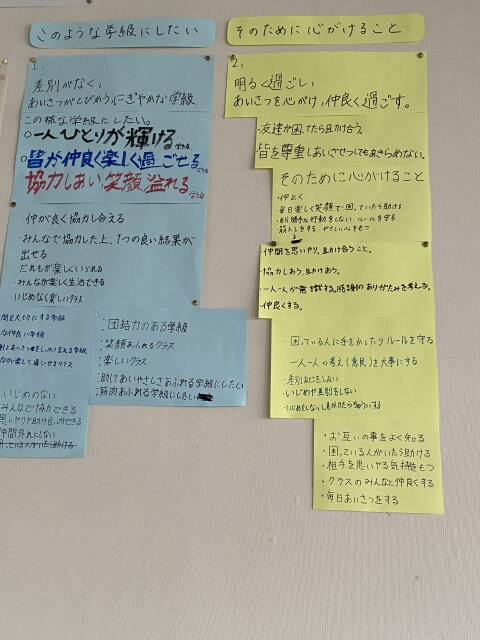 このような学級にしたい
1.
差別がなく、
あいさつがとびかうにぎやかな学級
この様な学級にしたい。
○一人ひとりが輝ける学級
○皆が仲良く楽しく過ごせる学級
○協力しあい笑顔溢れる学級
・仲が良く協力し合える
・みんなで協力した上、1つの良い結果が
出せる
だれもが楽しくいられる
・みんなが楽しく生活できる
・いじめなく楽しいクラス
間を大切にする学級
な仲良い学級
なが楽しく過ごせるクラス
:団結力のある学級
・笑顔あふれるクラス
・楽しいクラス
:助けあいやさしさあふれる学級にしたい
:筋肉あふれる学級にしたい
いじめのない
みんなで協力できる
思いやりや助け合いができる
仲間外れにしない
っている人がいたら助ける
そのために心がけること
2.
明るく過ごし、
あいさつを心がけ,仲良く過ごす。
・友達が困ってたら助け合う。
皆を尊重しあいさせつしてもあきらめない。
そのために心がけること
・仲よく
・毎日楽しく笑顔で困っていたら助ける
・自分勝手な行動をしない、ルールを守る
・筋トレをする やさしい心をもつ
仲間を思いやり、助け合うこと。
・協力しあう、助けあう。
・一人一人が意識する。感謝のありがたみを考える。
・仲良くする。
・困っている人に手をかしたりルールを守る
・一人一人の考え(意見)を大事にする
差別などをしない
・いじめや差別をしない
・お互いの事をよく知る
・困っている人がいたら助ける
・相手を思いやる気持をもつ
・クラスのみんなと仲良くする
・毎日あいさつをする